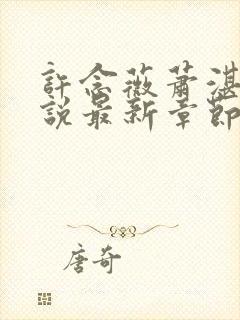 許念薇蕭湛
說最新章節
唐奇